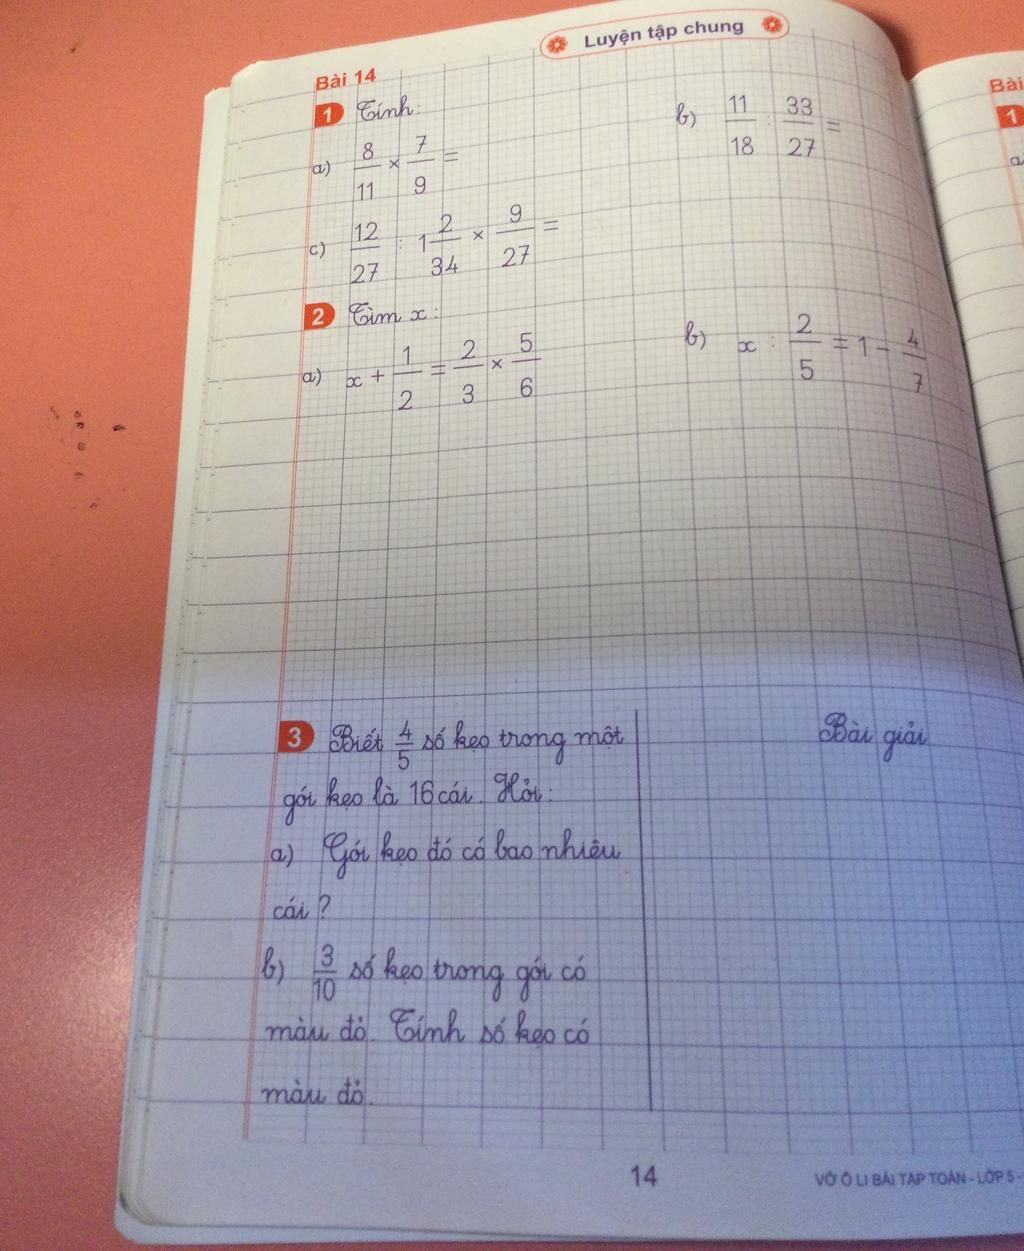 Luyện tập chung
Bài 14
1 Tính:
a) 8/11 × 7/9 =
b) 11/18 : 33/27 =
c) 12/27 : 1 2/34 × 9/27 =
2 Tìm x:
a) x + 1/2 = 2/3 × 5/6
b) x : 2/5 = 1 - 4/7
3 Biết 4/5 số kẹo trong một
gói kẹo là 16 cái. Hỏi:
a) Gói kẹo đó có bao nhiêu
cái?
b) 3/10 số kẹo trong gói có
màu đỏ. Tính số kẹo có
màu đỏ.
Bài giải
14
VỞ Ô LI BÀI TẬP TOÁN - LỚP 5 -
Bài
1
a